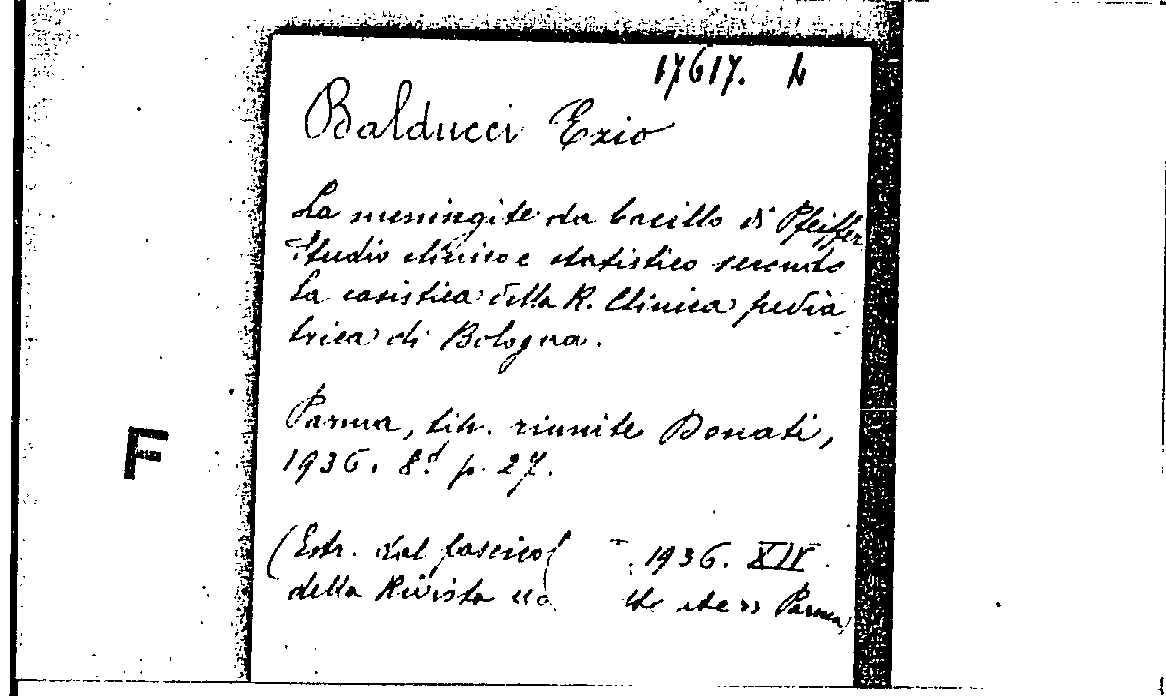 17617. h
Balducci Ezio
La meningite da bacillo di Pfeiffer
Studio clinico e statistico secondo
la casistica della R. Clinica pedia
trica di Bologna.
Parma, tip. riunite Donati,
1936. 8° p. 27.
F
(Estr. dal fascicol 1936. XIV.
della Rivista Parma)